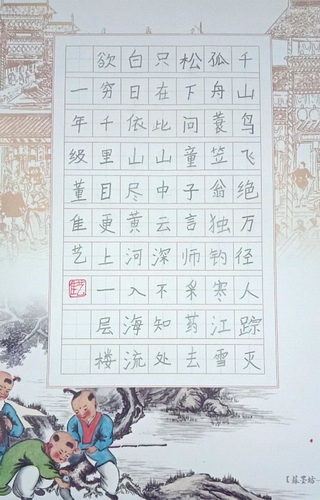 千山鸟飞绝万径人踪灭
孤舟蓑笠翁独钓寒江雪
松下问童子言师采药去
只在此山中云深不知处
白日依山尽黄河入海流
欲穷千里目更上一层楼
一年级董佳艺